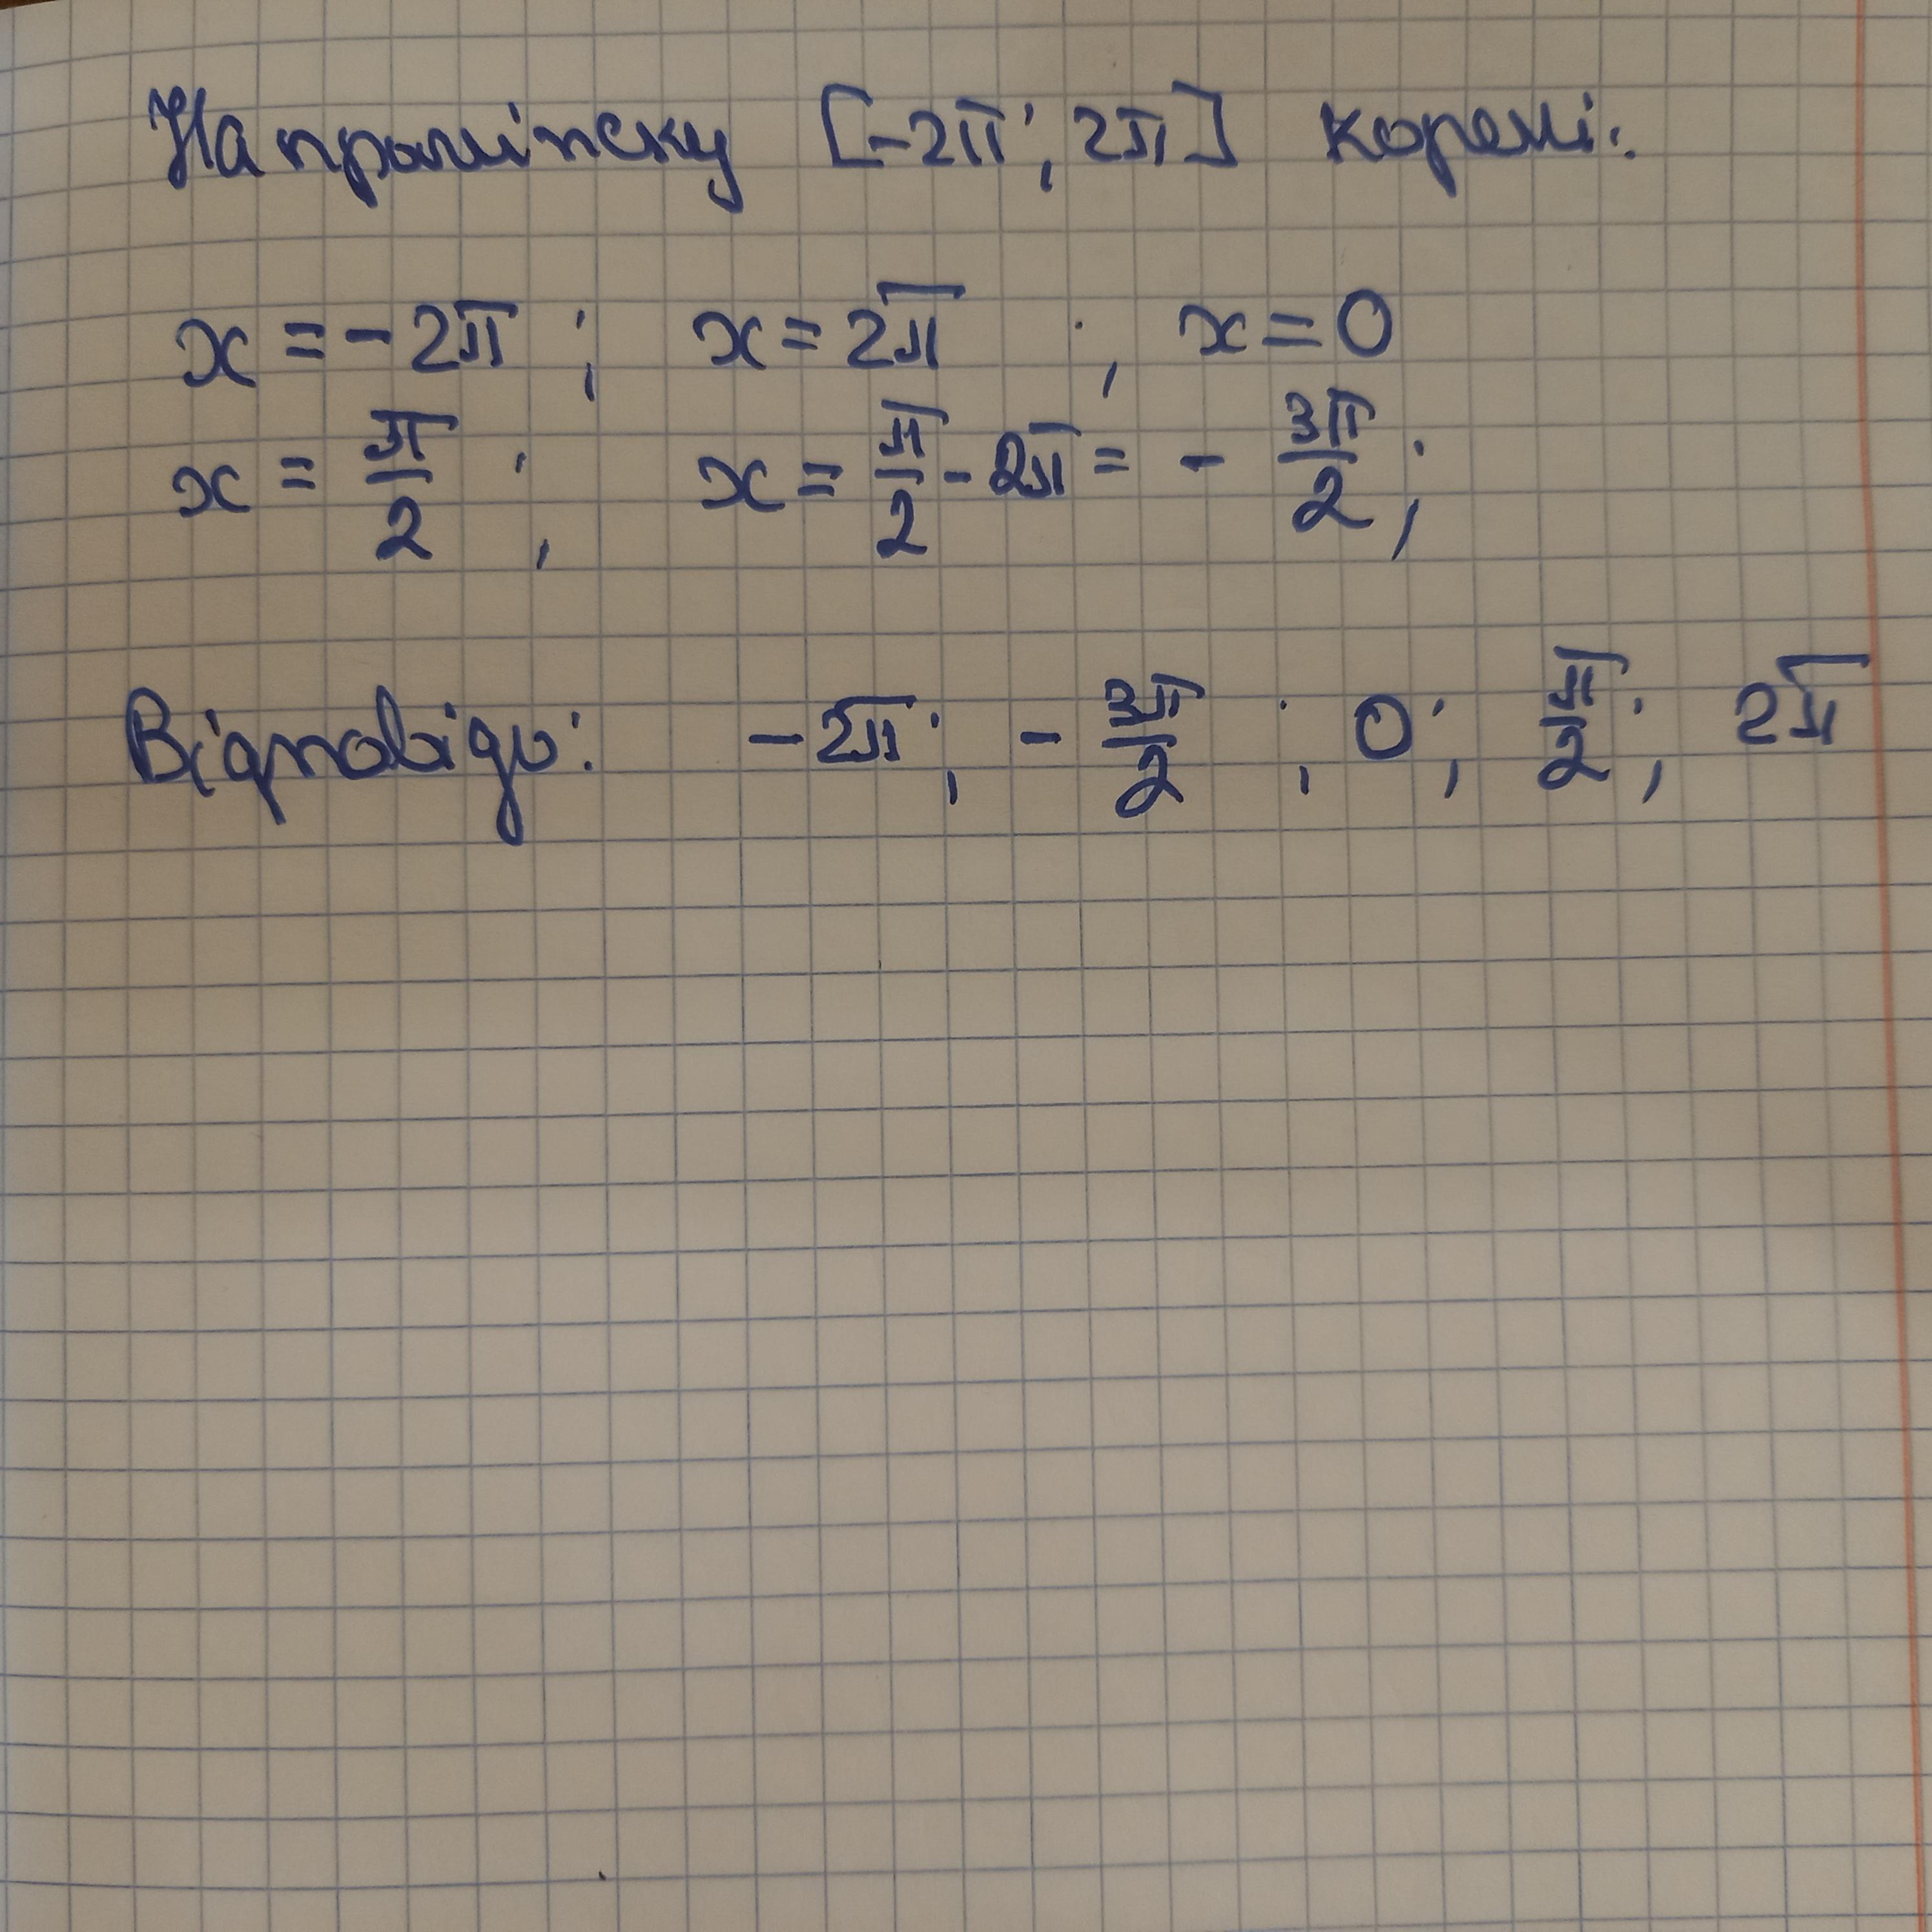 На проміпску [-2π; 2π] корені:
x = -2π ; x = 2π ; x = 0
x = π/2 ; x = π/2 - 2π = - 3π/2 ;
Відповідь: -2π ; - 3π/2 ; 0 ; π/2 ; 2π